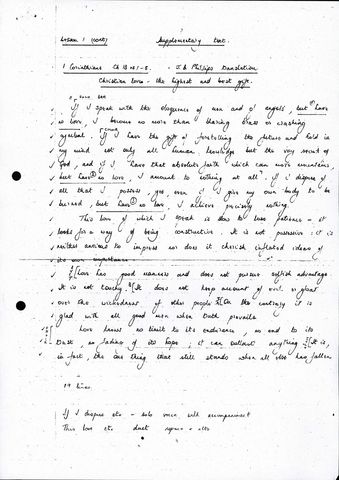 Lesson 1 (cont) Supplementary text.
1 Corinthians Ch 13 vs 1-8. J B Phillips Translation
Christian Love - the highest and best gift.
If I speak with the eloquence of men and of angels, but have
no love, I become no more than blaring brass or crashing
cymbal. If I have the gift of foretelling the future and hold in
my mind not only all human knowledge but the very secrets of
God, and if I have that absolute faith which can move mountains,
but have no love, I amount to nothing at all. If I dispose of
all that I possess, yes, even if I give my own body to be
burned, but have no love, I achieve precisely nothing.
This love of which I speak is slow to lose patience - it
looks for a way of being constructive. It is not possessive: it is
neither anxious to impress nor does it cherish inflated ideas of
its own importance.
Love has good manners and does not pursue selfish advantage.
It is not touchy. It does not keep account of evil or gloat
over the wickedness of other people. On the contrary it is
glad with all good men when truth prevails.
Love knows no limit to its endurance, no end to its
trust, no fading of its hope; it can outlast anything. It is,
in fact, the one thing that still stands when all else has fallen.
19 lines.
If I dispose etc - solo voice, with accompaniment
This love etc duet